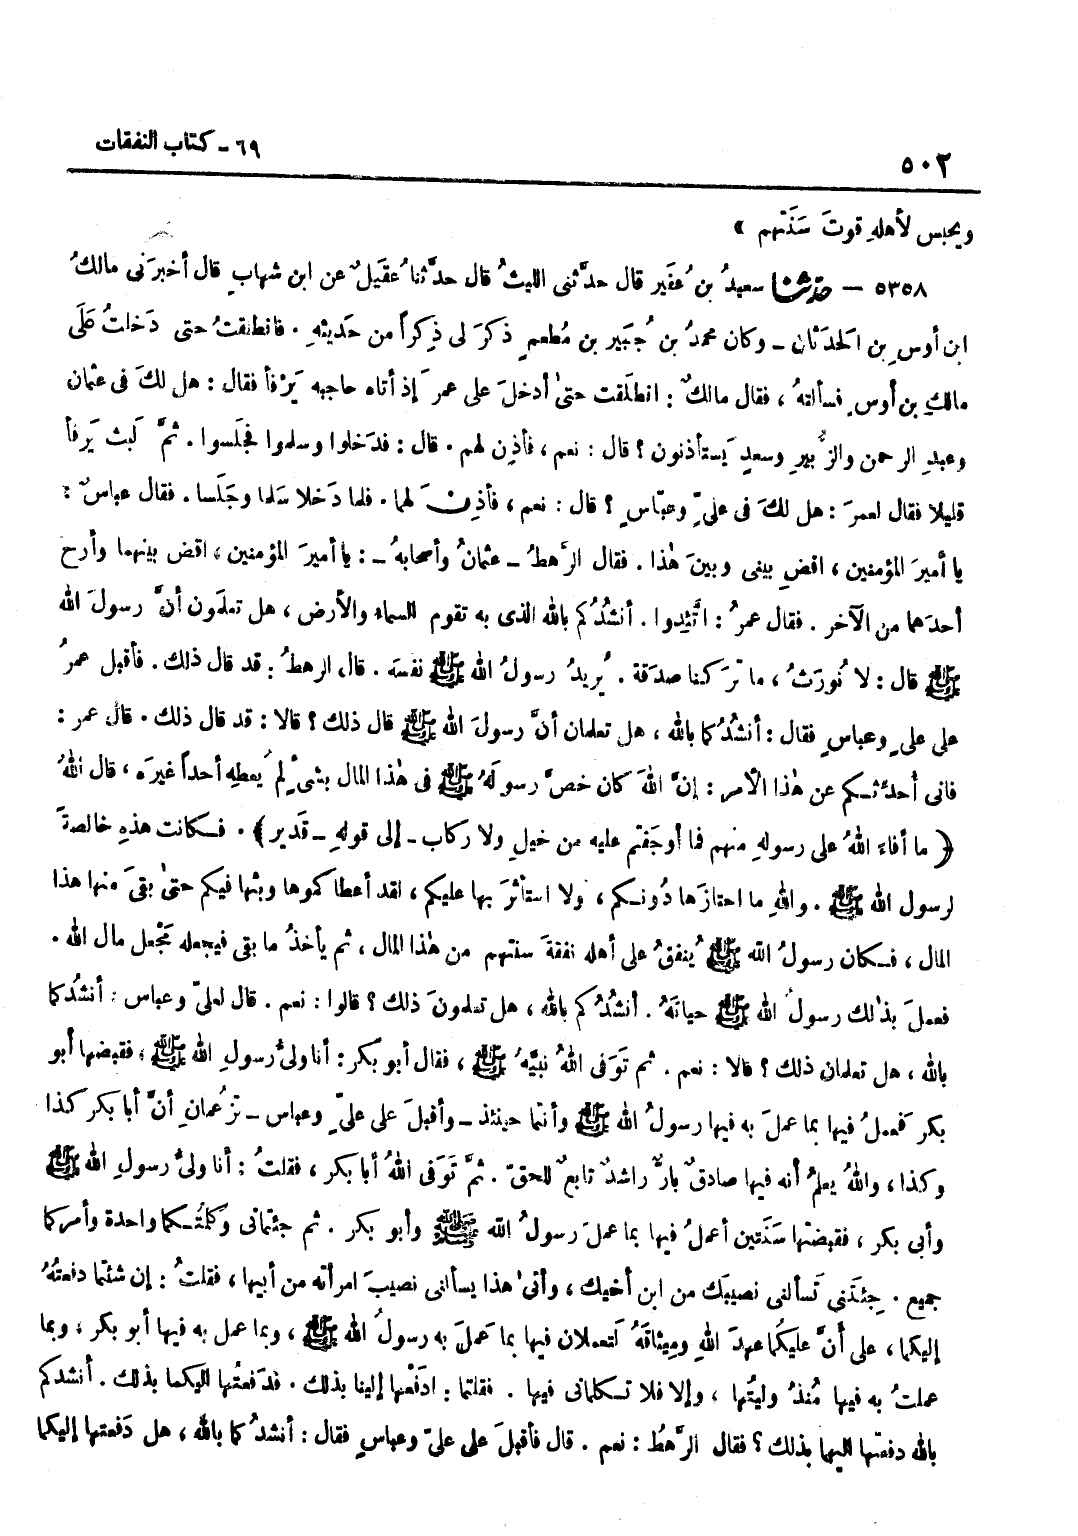 ٥٠٢
٦٩ - كتاب النفقات
ويحبس لأهلهِ قوتَ سَنَتهم »
٥٣٥٨ — حدّثنا سعيدُ بنُ عُفَير قال حدَّثنى الليثُ قال حدَّثنا عُقَيلٌ عن ابن شهابٍ قال أخبرَنى مالكُ
ابن أوسِ بن الحَدَثان - وكان محمدُ بن جُبَير بن مُطعمٍ ذكرَ لى ذِكراً من حَديثهِ . فانطلقتُ حتى دَخلتُ عَلَى
مالكِ بن أوسٍ فسألتهُ ، فقال مالكٌ : انطلَقت حتىٰ أدخلَ على عمرَ إذ أتاه حاجبه يَرْفأ فقال : هل لكَ فى عثمان
وعبدِ الرحمن والزُّبيرِ وسعدٍ يَستأذنون ؟ قال : نعم ، فأذِن لهم . قال : فدَخلوا وسلموا فجَلَسوا . ثمَّ لَبث يَرفأ
قليلا فقال لعمرَ : هل لكَ فى علىٍّ وعبّاسٍ ؟ قال : نعم ، فأذِنَ لهما . فلما دَخلا سَلما وجَلَسا . فقال عباسٌ :
يا أميرَ المؤمنين ، اقضِ بينى وبينَ هٰذا . فقال الرَّهطُ - عثمانُ وأصحابهُ - : يا أميرَ المؤمنين ، اقض بينهما وأرح
أحدَهما من الآخر . فقال عمرُ : اتَّئِدوا . أنشُدُكم بالله الذى به تقوم السماء والأرض ، هل تعلمون أنَّ رسولَ الله
ﷺ قال : لا نُورَثُ ، ما تَركنا صدَقة . يُريدُ رسولُ الله ﷺ نفسَه . قال الرهطُ : قد قال ذلك . فأقبل عمرُ
على علىٍ وعباسٍ فقال : أنشُدُكما بالله ، هل تعلمان أنَّ رسولَ الله ﷺ قال ذلك ؟ قالا : قد قال ذلك . قال عمر :
فانى أُحدِّثكم عن هٰذا الأمر : إنَّ اللهَ كان خصَّ رسولَهُ ﷺ فى هٰذا المال بشىءٍ لم يُعطِه أحداً غيرَه ، قال اللهُ
﴿ ما أفاءَ اللهُ على رسولهِ منهم فما أوجَفتم عليه من خيلٍ ولا ركاب - إلى قولهِ - قَدير ﴾ . فكانت هذهِ خالصةً
لرسول الله ﷺ . واللهِ ما احتازَها دُونكم ، ولا استأثرَ بها عليكم ، لقد أعطاكموها وبثها فيكم حتىٰ بقىَ منها هذا
المال ، فكان رسولُ الله ﷺ يُنفقُ على أهله نفقةَ سنتهم من هٰذا المال ، ثم يأخذُ ما بقى فيجعله مَجْعل مال الله .
فعملَ بذٰلك رسولُ الله ﷺ حياتَهُ . أنشُدُكم بالله ، هل تعلمونَ ذلك ؟ قالوا : نعم . قال لعلىّ وعباس : أنشُدُكما
بالله ، هل تعلمانِ ذلك ؟ قالا : نعم . ثم تَوَفى اللهُ نبيَّهُ ﷺ ، فقال أبو بكر : أنا ولىُّ رسولِ الله ﷺ ، فقبضها أبو
بكر فعملُ فيها بما عملَ به فيها رسولُ الله ﷺ وأنتما حينئذ - وأقبلَ على علىٍّ وعباس - تزْعُمان أنَّ أبا بكر كذا
وكذا ، واللهُ يعلمُ أنه فيها صادقٌ بارٌّ راشدٌ تابعٌ للحقّ . ثمَّ تَوَفى اللهُ أبا بكر ، فقلتُ : أنا ولىُّ رسولِ الله ﷺ
وأبى بكر ، فقبضتها سَنَتين أعملُ فيها بما عملَ رسولُ الله ﷺ وأبو بكر . ثم جئتمانى وكلمتُكما واحدة وأمركما
جميع . جِئتَنى تَسألنى نصيبَك من ابن أخيك ، وأتىٰ هذا يسألنى نصيبَ امرأته من أبيها ، فقلتُ : إن شئتما دفعتُهُ
إليكما ، على أنَّ عليكما عهدَ اللهِ ومِيثاقَهُ لَتعملان فيها بما عَملَ به رسولُ الله ﷺ ، وبما عمل به فيها أبو بكر ، وبما
عملتُ به فيها مُنذُ وليتُها ، وإلا فلا تكلمانى فيها . فقلتما : ادفَعْها إلينا بذلك . فدَفعتُها اليكما بذلك . أنشدكم
بالله دفعتها اليهما بذلك ؟ فقال الرَّهطُ : نعم . قال فأقبلَ على علىّ وعباسٍ فقال : أنشدُكما بالله ، هل دَفعتها إليكما